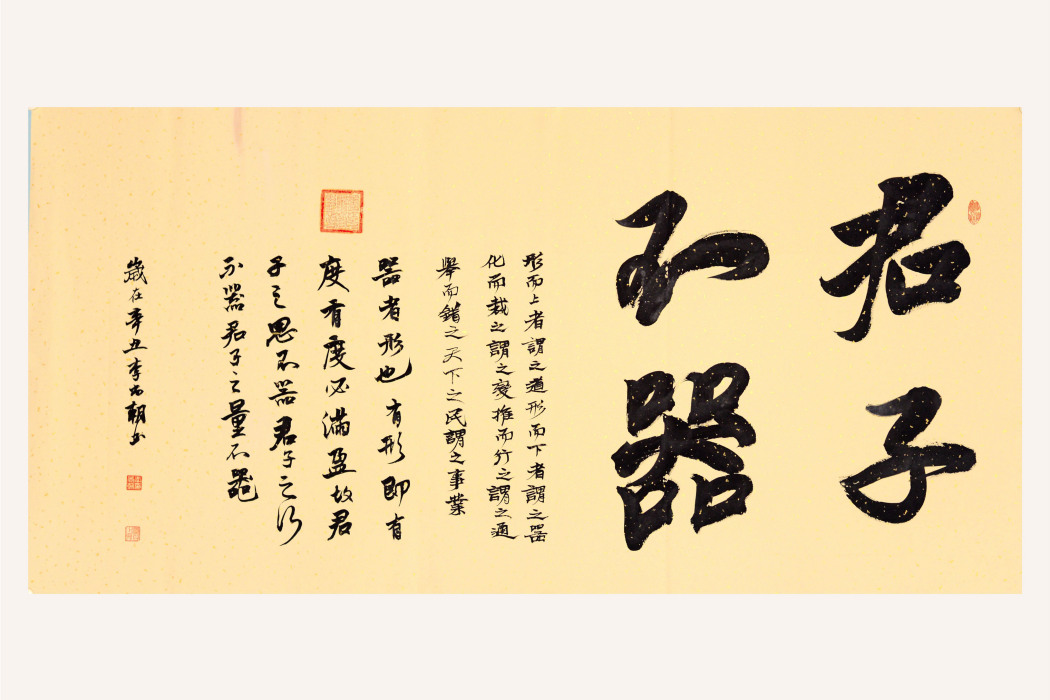 君子
不器
形而上者謂之道形而下者謂之器
化而裁之謂之變推而行之謂之通
舉而錯之天下之民謂之事業
器者形也有形即有
度有度必滿盈故君
子之思不器君子之行
不器君子之量不器
歲在辛丑李尚朝書